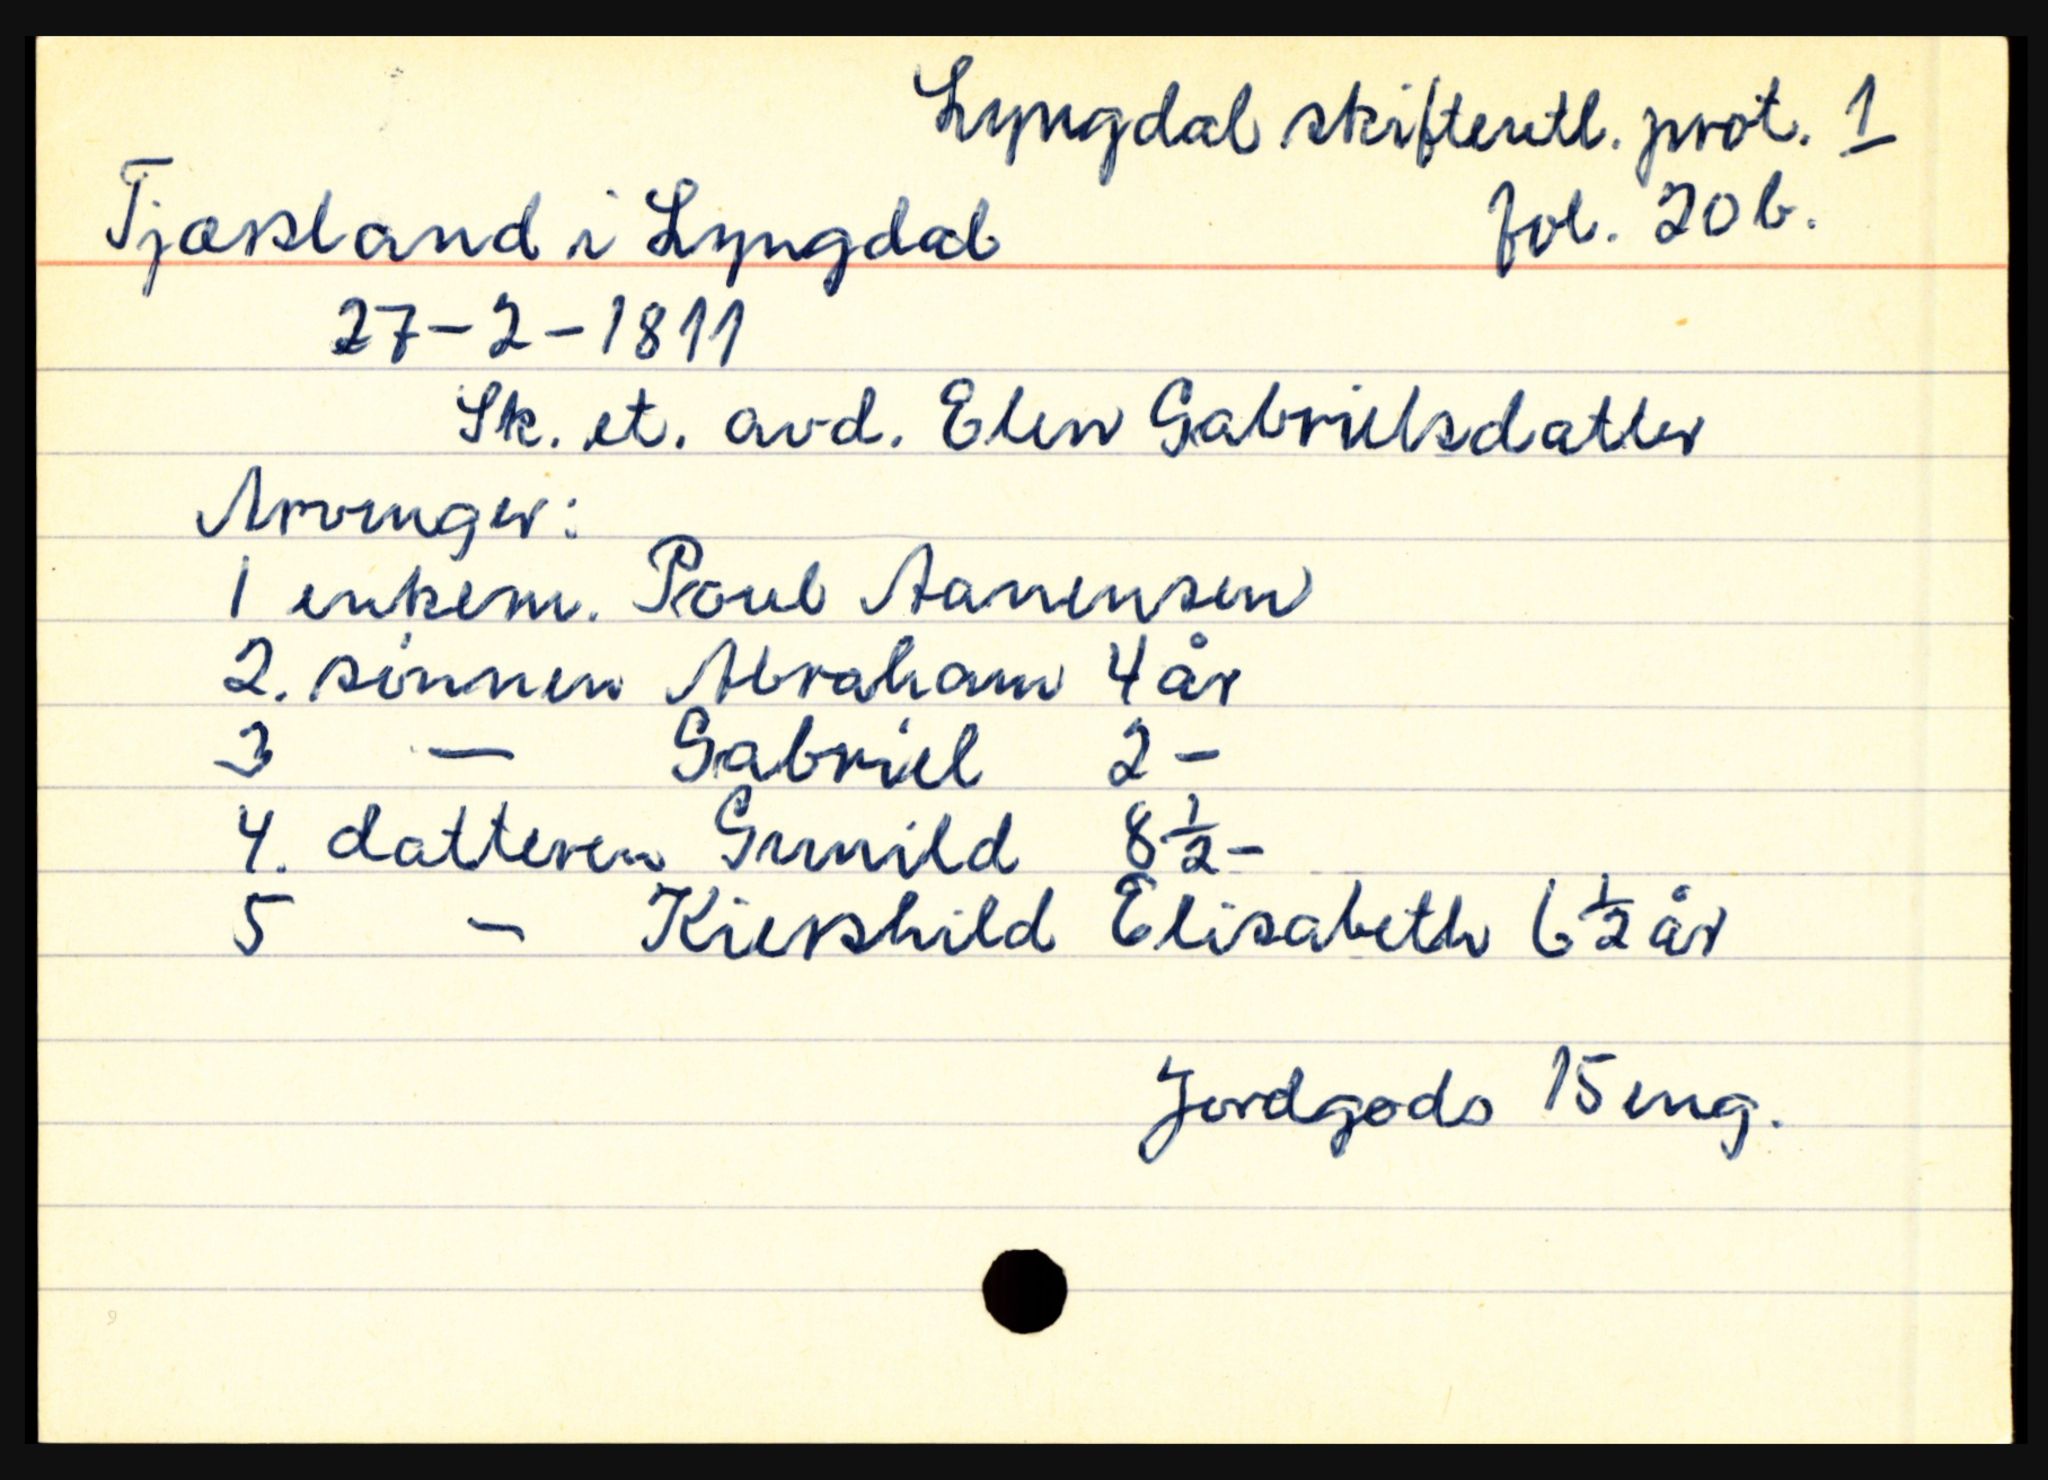 Lyngdal skifteretl. prot. 1
Tjærsland i Lyngdal fol. 20b.
27-2-1811
Sk. et. avd. Elen Gabrielsdatter
Arvinger:
1 enkem. Poul Aanensen
2. sönnen Abraham 4 år
3 — Gabriel 2 -
4. datteren Gunild 8 1/2 -
5 - Kiershild Elisabeth 6 1/2 år
Jordgods 15 eng.